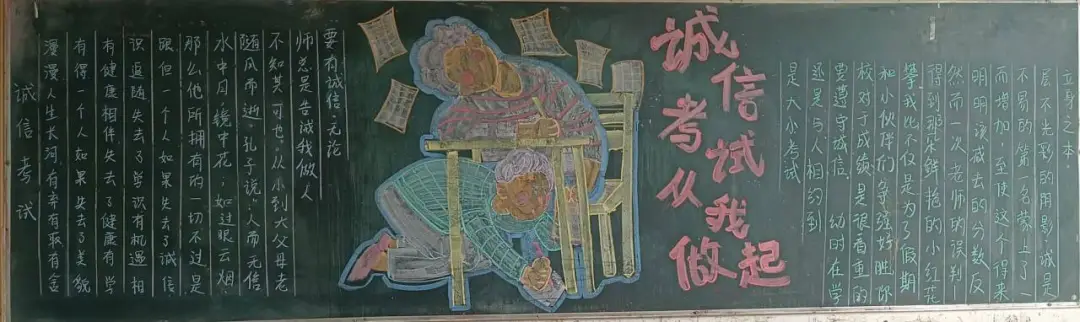 诚信考试
漫漫人生长河,有弃有取有舍
有得一个人如果失去了美貌
有健康相伴失去了健康有学
识追随失去了学识有机遇相
跟但一个人如果失去了诚信
那么他所拥有的一切不过是
水中月,镜中花,如过眼云烟
随风而逝。孔子说:人而无信
不知其可也。从小到大父母老
师总是告诫我做人
要有诚信,无论
诚信
考试
从我
做起
是大小考试
还是与人相约到
要遵守诚信 幼时在学
校对于成绩是很看重的
和小伙伴们争强好胜你
攀我比不仅是为了假期
得到那朵鲜艳的小红花
然而一次老师的误判
明明该减去的分数反
而增加,至使这个得来
不易的第一名蒙上了一
层不光彩的阴影,诚是
立身之本.